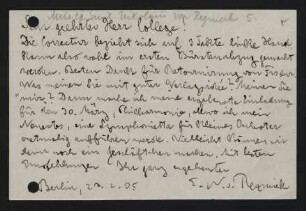 Musikfreund Nikolaus von Reznicek 5.
Sehr geehrter Herr College!
Die Correctur bezieht sich auf 3 Takte linke Hand
kann also wohl im ersten Bürstenabzug gemacht
werden. Besten Dank für Retournierung von
Was meinen Sie mit guter Verlagsidee? Meinen Sie
mir? Dann mache ich meine ergebenste Einladung
für den 30. März, Philharmonie, allwo ich mein
Neuestes, eine Symphonietta für kleines Orchester
erstmalig aufführen werde. Vielleicht können wir
dann noch ein Geschäftchen machen. Mit besten
Empfehlungen Ihr ganz ergebenster
E. N. v. Reznicek
Berlin, 22. 2. 05